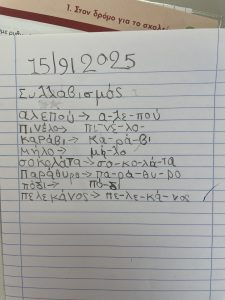 1. Στον δρόμο για το σχολεί
15/9/2025
Συλλαβισμός
αλεπού → α-λε-πού
Πινέλο → πι-νέ-λο-
καράβι → κα-ρά-βι
μήλο → μή-λο
σοκολάτα → σο-κο-λά-τα
Παράθυρο → πα-ρά-θυ-ρο
πόδι → πό-δι
πελεκάνος → πε-λε-κά-νος